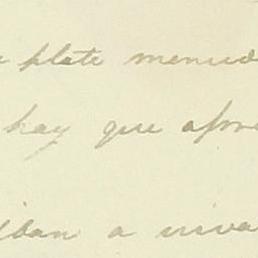 plate menud
hay que apre
iban a viva